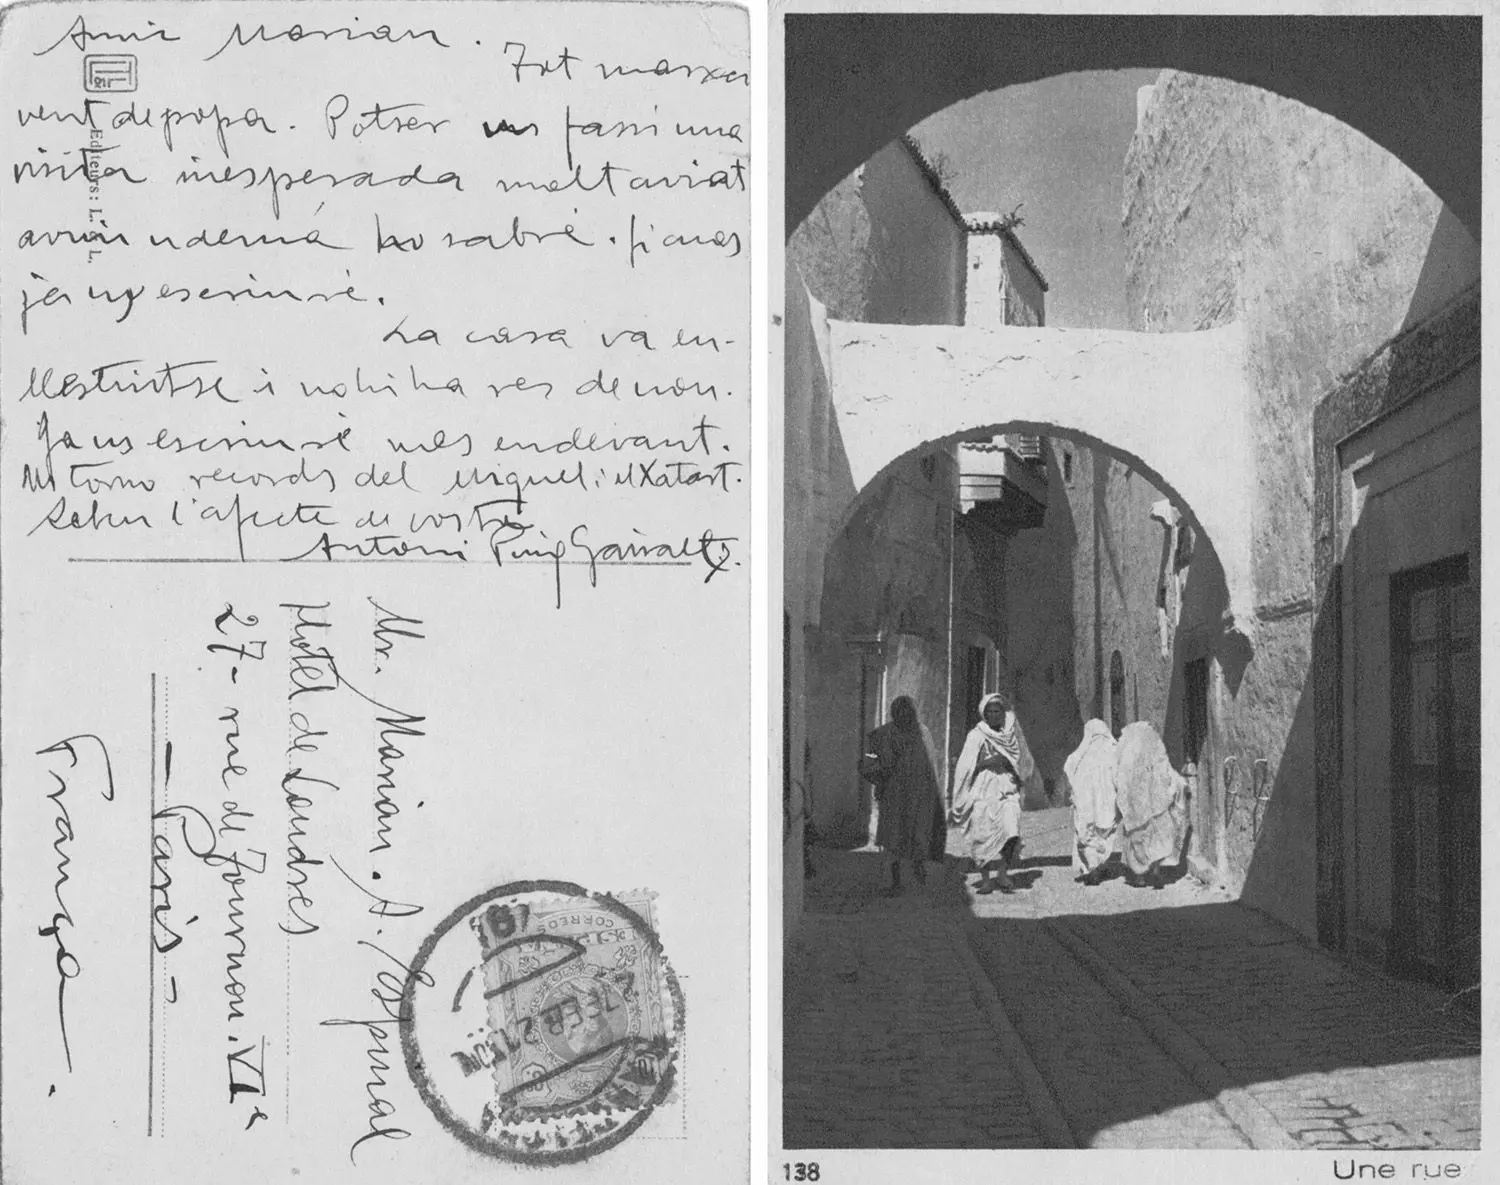 Amic Marian.
Tot marxa
vent de popa. Potser us fassi una
visita inesperada molt aviat
avui o demá ho sabré. Si mes
ja us escriuré.
La casa va en-
llestintse i no hi ha res de nou.
Ja us escriuré mes endevant.
Us torno records del Miquel i el Xatart.
Sabeu l'afecte de vostre
Antoni Puig Gairalt.
Editeurs: L. L.
Mr. Marian. A. Espinal
Hotel de Londres
27- rue de Tournon. VIe
- Paris -
França.
CORREOS
7 FEB 2
138
Une rue